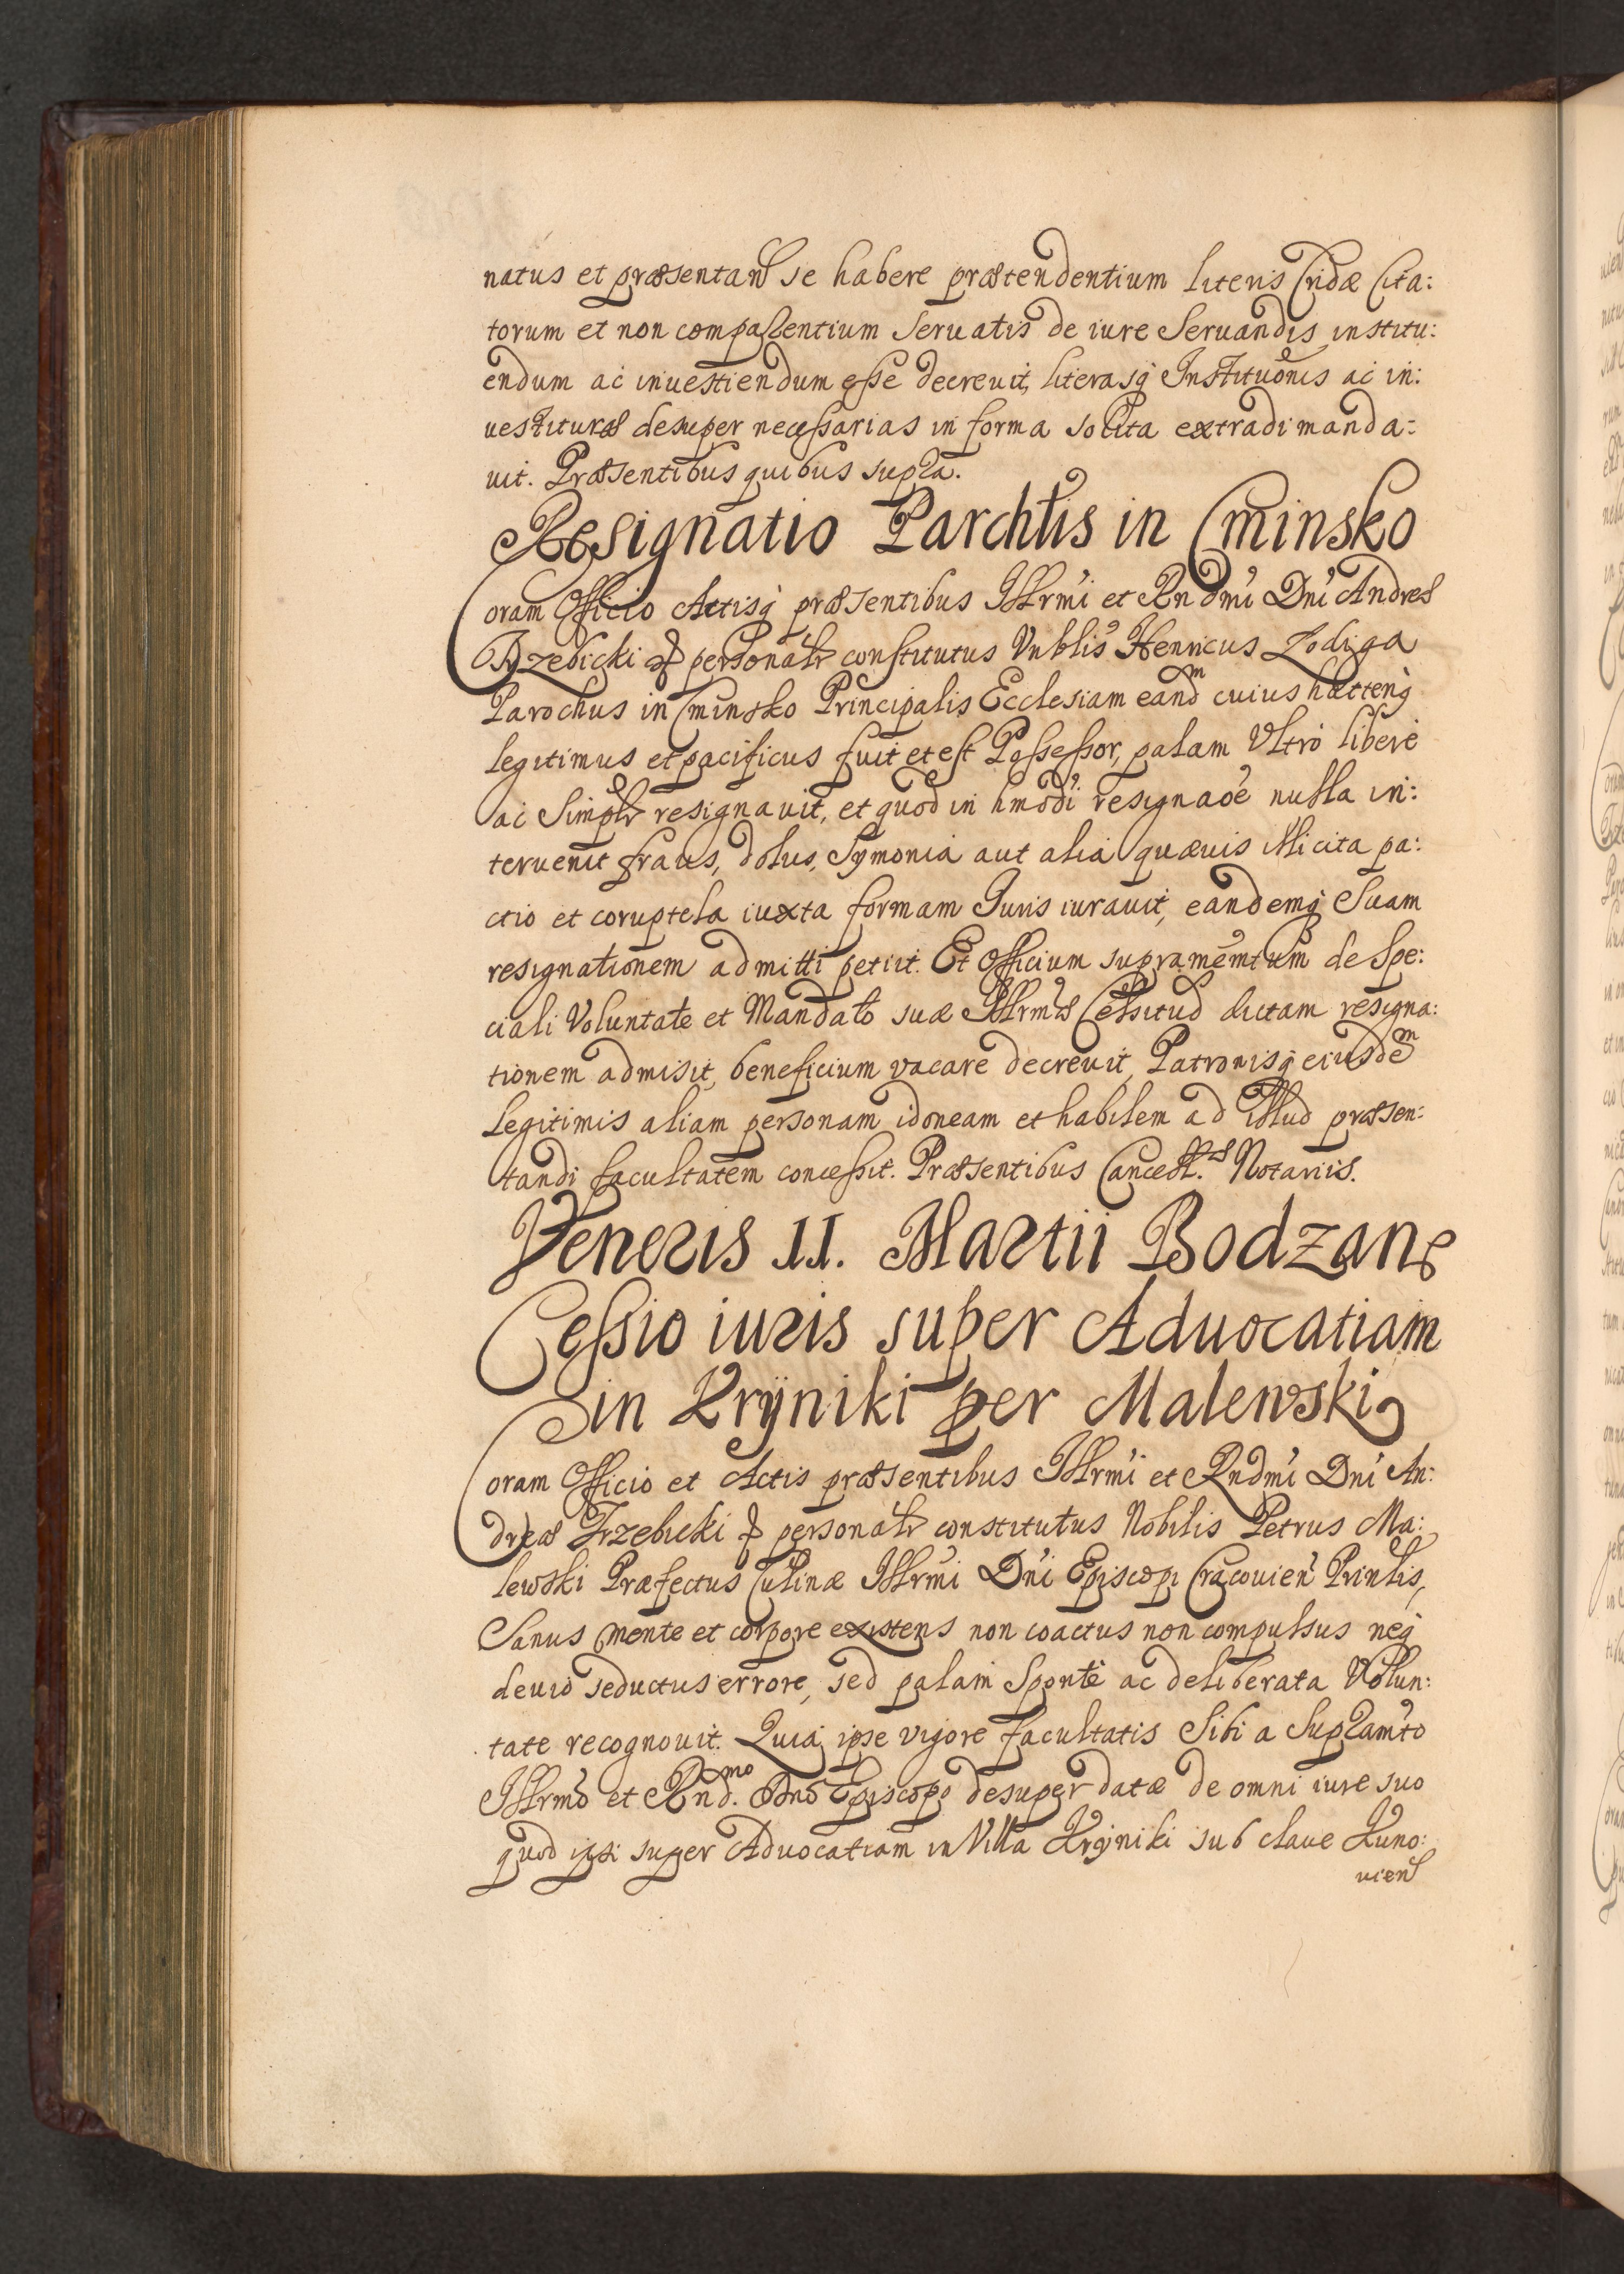 natus et præsentan se habere prætendentium literis Cridæ Cita:
torum et non comparentium Seruatis de iure Seruandis institu:
endum ac inuestiendum esse decreuit, literasq́ Institu͠onis ac in:
uestituræ desuper necessarias in forma solita extradi manda:
uit. Præsentibus quibus supra.
Resignatio Parchlis in Cminsko
Coram Officio Actisq́ præsentibus Illr̃mi et Rndm̃i Dni Andreæ
Trzebicki personalr constitutus Vnblis Henricus
Parochus in Cminsko Principalis Ecclesiam eandᵐ cuius hactenq́
legitimus et pacificus fuit et est Possessor, palam Vltrò liberè
ac Simplr resignauit, et quod in hmõdi resignaõe nulla in:
teruenit fraus, dolus, Symonia aut alia quæuis illicita pa:
ctio et coruptela iuxta formam Iuris iurauit, eandemq́ Suam
resignationem admitti petiit. Et Officium supramemtum de Spe:
ciali Voluntate et Mandato suæ Illrmæ Celsitud dictam resigna:
tionem admisit, beneficium vacare decreuit, Patronisq́ eiusdeᵐ
Legitimis aliam personam idoneam et habilem ad illud præsen:
tandi facultatem concessit. Præsentibus Cancell.æ Notariis.
Veneris II. Martii Bodzan
Cessio iuris super Aduocatiam
in Kryniki per Malewski
Coram Officio et Actis præsentibus Illrm̃i et Rndm̃i Dni An:
dreæ Trzebicki personalr constitutus Nobilis Petrus Ma:
lewski Præfectus Culinæ Illrmi Dni Episcopi Cracouien Prinlis,
Sanus mente et corpore existens non coactus non compulsus neq́
deuio seductus errore, sed palam Spontè ac deliberata Volun:
tate recognouit. Quia ipse vigore facultatis Sibi a Supramto
Illrmõ et Rnd.ᵐᵒ Dno Episcopo desuper datæ de omni iure suo
quod ipsi super Aduocatiam in Villa Kryniki sub claue Kuno:
uien